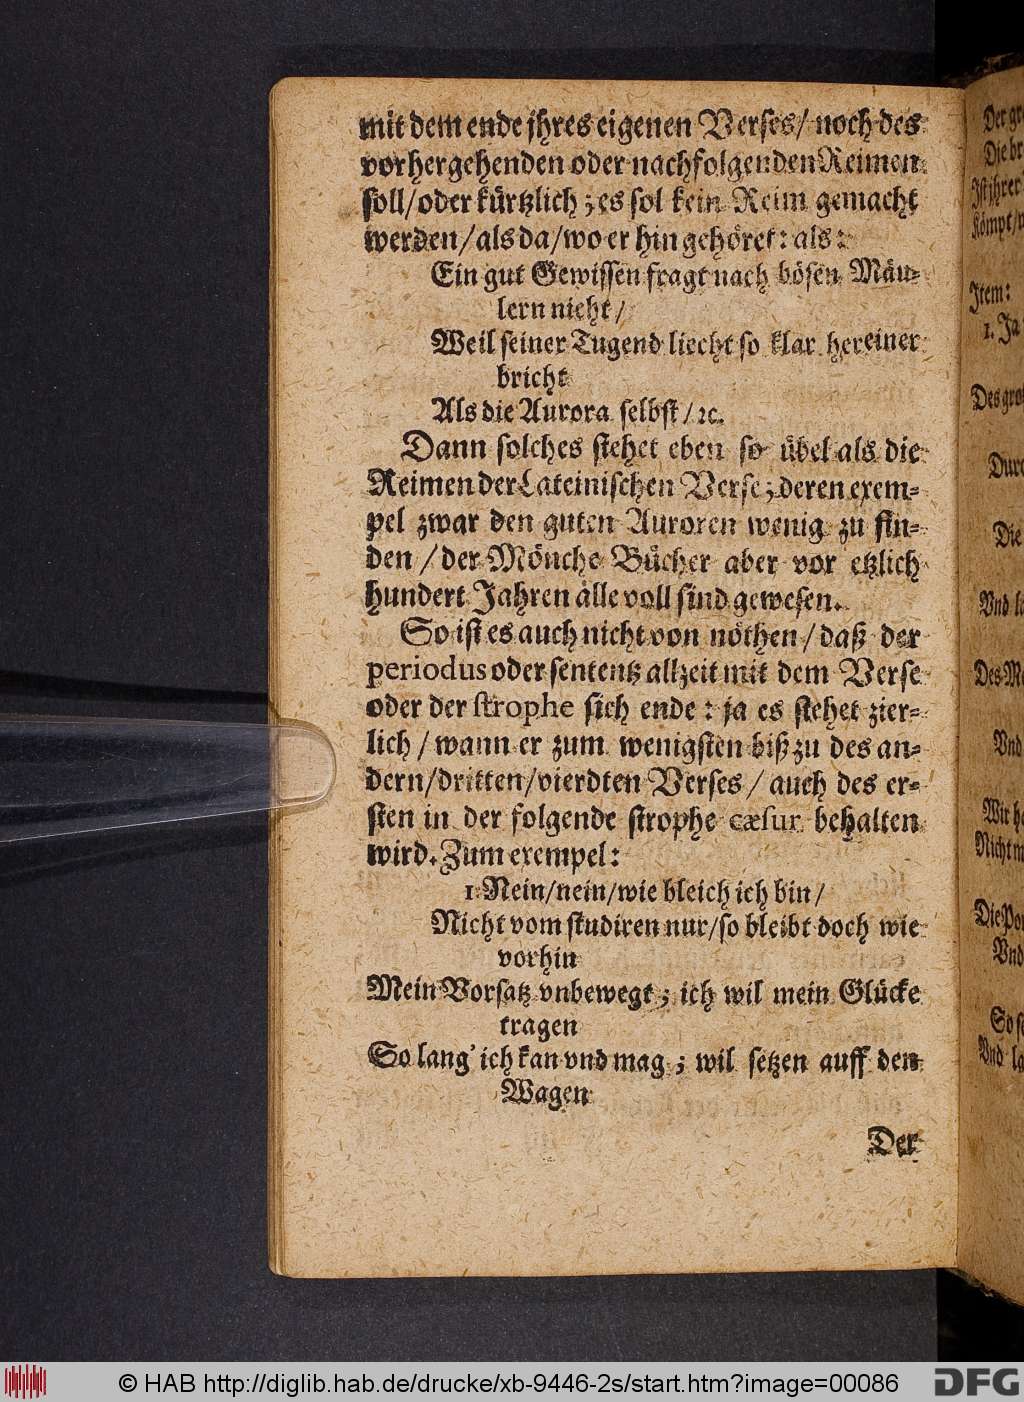 mit dem ende jhres eigenen Verses/ noch des
vorhergehenden oder nachfolgenden Reimen
soll/ oder kürtzlich ; es sol kein Reim gemacht
werden/ als da/ wo er hin gehöret : als :
Ein gut Gewissen fragt nach bösen Mäu-
lern nicht/
Weil seiner Tugend liecht so klar hereiner
bricht
Als die Aurora selbst/ ꝛc.
Dann solches stehet eben so übel als die
Reimen der Lateinischen Verse ; deren exem-
pel zwar den guten Auroren wenig zu fin-
den / der Mönche Bücher aber vor etzlich
hundert Jahren alle voll sind gewesen.
So ist es auch nicht von nöthen / daß der
periodus oder sententz allzeit mit dem Verse
oder der strophe sich ende : ja es stehet zier-
lich / wann er zum wenigsten biß zu des an-
dern/ dritten/ vierdten Verses / auch des er-
sten in der folgende strophe cæsur behalten
wird. Zum exempel :
1. Nein/ nein/ wie bleich ich bin /
Nicht vom studiren nur/ so bleibt doch wie
vorhin
Mein Vorsatz vnbewegt ; ich wil mein Glücke
tragen
So lang' ich kan vnd mag ; wil setzen auff den
Wagen
Der
Der
Die
Item:
1. Ja
Die
Vnd
Vnd
Vnd
© HAB http://diglib.hab.de/drucke/xb-9446-2s/start.htm?image=00086
DFG